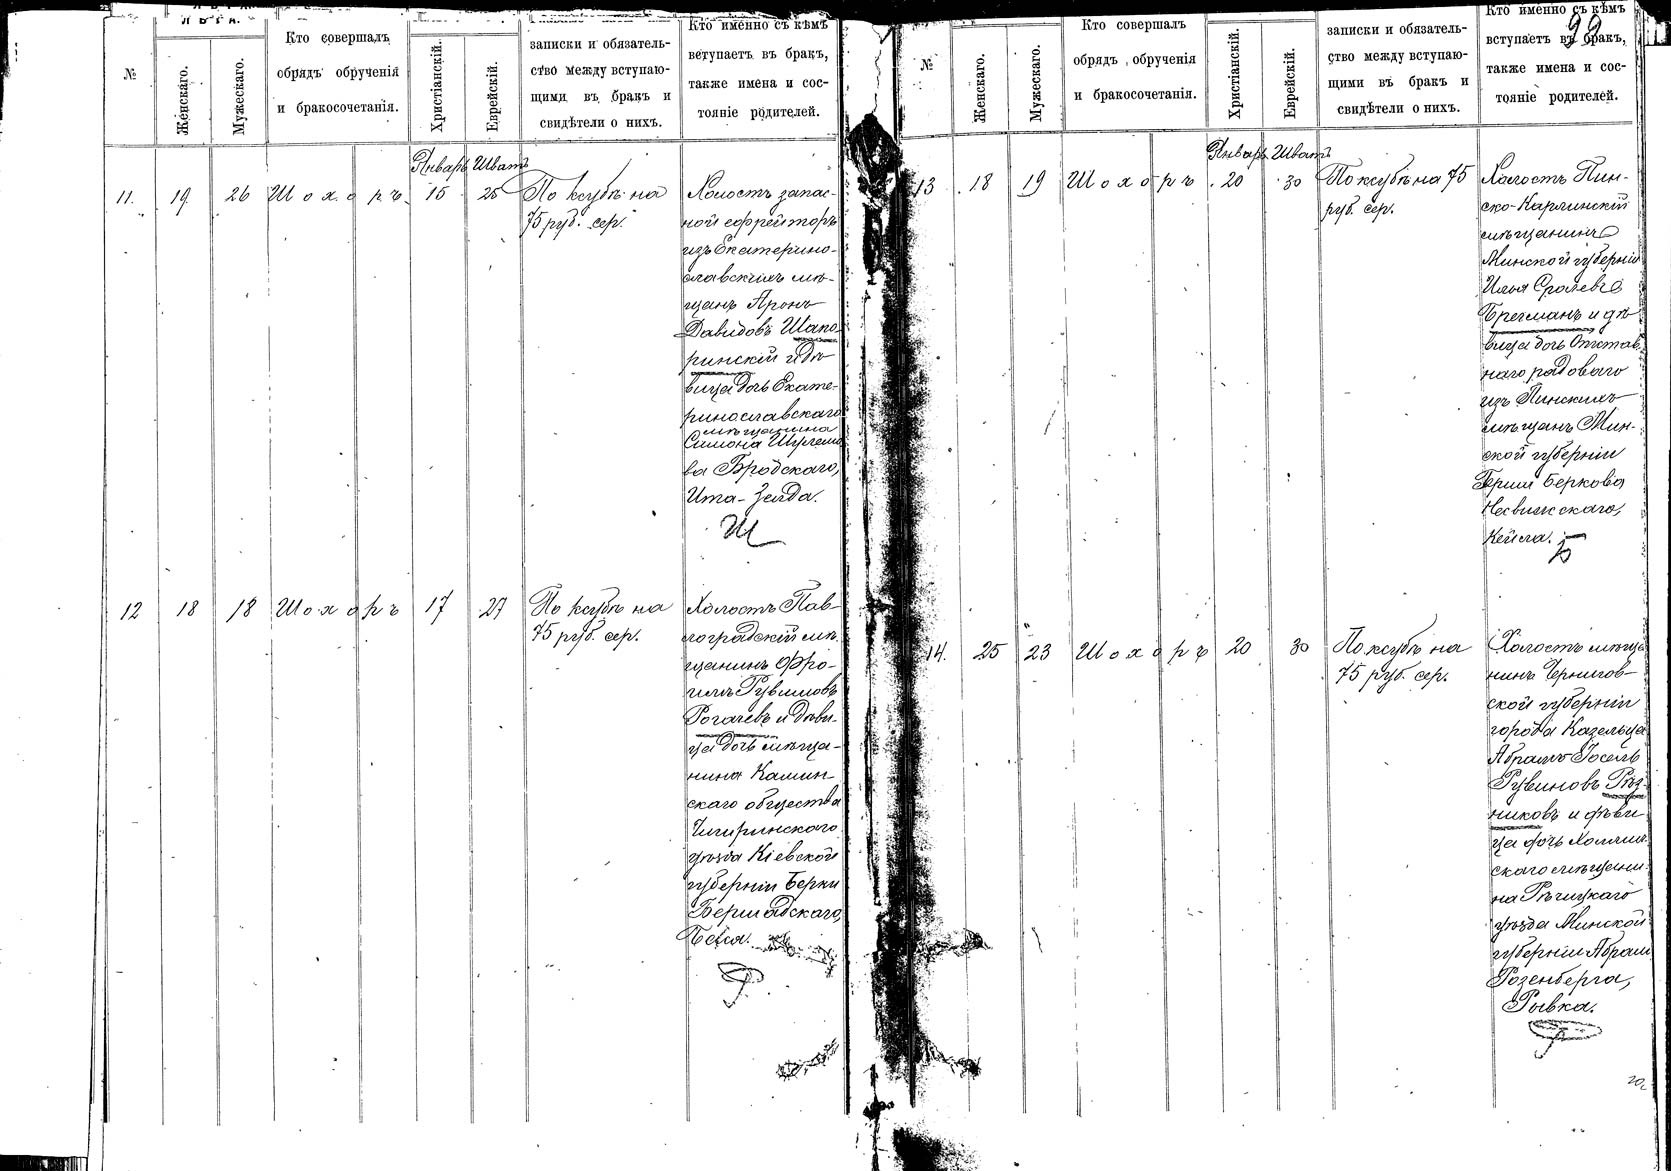 ЛѢТА.
№
Женскаго.
Мужескаго.
Кто совершалъ
обрядъ обрученія
и бракосочетанія.
Христіанскій.
Еврейскій.
записки и обязатель-
ство между вступаю-
щими въ бракъ и
свидѣтели о нихъ.
Кто именно съ кѣмъ
вступаетъ въ бракъ,
также имена и сос-
тояніе родителей.
Январь Шватъ
11. 19 26 Шохоръ 15 25
По ксубѣ на
75 руб. сер.
Холостъ запас-
ной ефрейторъ
изъ Екатерино-
славскихъ мѣ-
щанъ Аронъ
Давидовъ Шапо-
ринскій и дѣ-
вица дочь Екате-
ринославскаго
мѣщанина
Симона
ва Бродскаго,
Ита-Зелда.
Ш
12 18 18 Шохоръ 17 27
По ксубѣ на
75 руб. сер.
Холостъ Пав-
лоградскій мѣ-
щанинъ Фро-
имъ Рувимовъ
Рогачевъ и дѣви-
ца дочь мѣща-
нина Камин
скаго общества
Чигиринскаго
уѣзда Кіевской
губерніи Берки
Бершадскаго,
Бейля.
Р
99
№
Женскаго.
Мужескаго.
Кто совершалъ
обрядъ обрученія
и бракосочетанія.
Христіанскій.
Еврейскій.
записки и обязатель-
ство между вступаю-
щими въ бракъ и
свидѣтели о нихъ.
Кто именно съ кѣмъ
вступаетъ въ бракъ,
также имена и сос-
тояніе родителей.
Январь Шватъ
13 18 19 Шохоръ 20 30
По ксубѣ на 75
руб. сер.
Холостъ Пин-
ско-Карлинскій
мѣщанинъ
Минской губерніи
Илья Сролевъ
Брегманъ и дѣ-
вица дочь Отстав
наго рядоваго
изъ Пинскихъ
мѣщанъ Мин-
ской губерніи
Герши Беркова
Несвижскаго,
Кейла.
Б
14. 25 23 Шохоръ 20 30
По ксубѣ на
75 руб. сер.
Холостъ мѣща
нинъ Чернигов-
ской губерніи
города Казельца
Абрамъ Іосель
Рувиновъ Рѣз-
никовъ и дѣви
ца дочь Холмин
скаго мѣщани-
на Рѣчицкаго
уѣзда Минской
губерніи Абрам
Розенберга,
Рывка.
Р